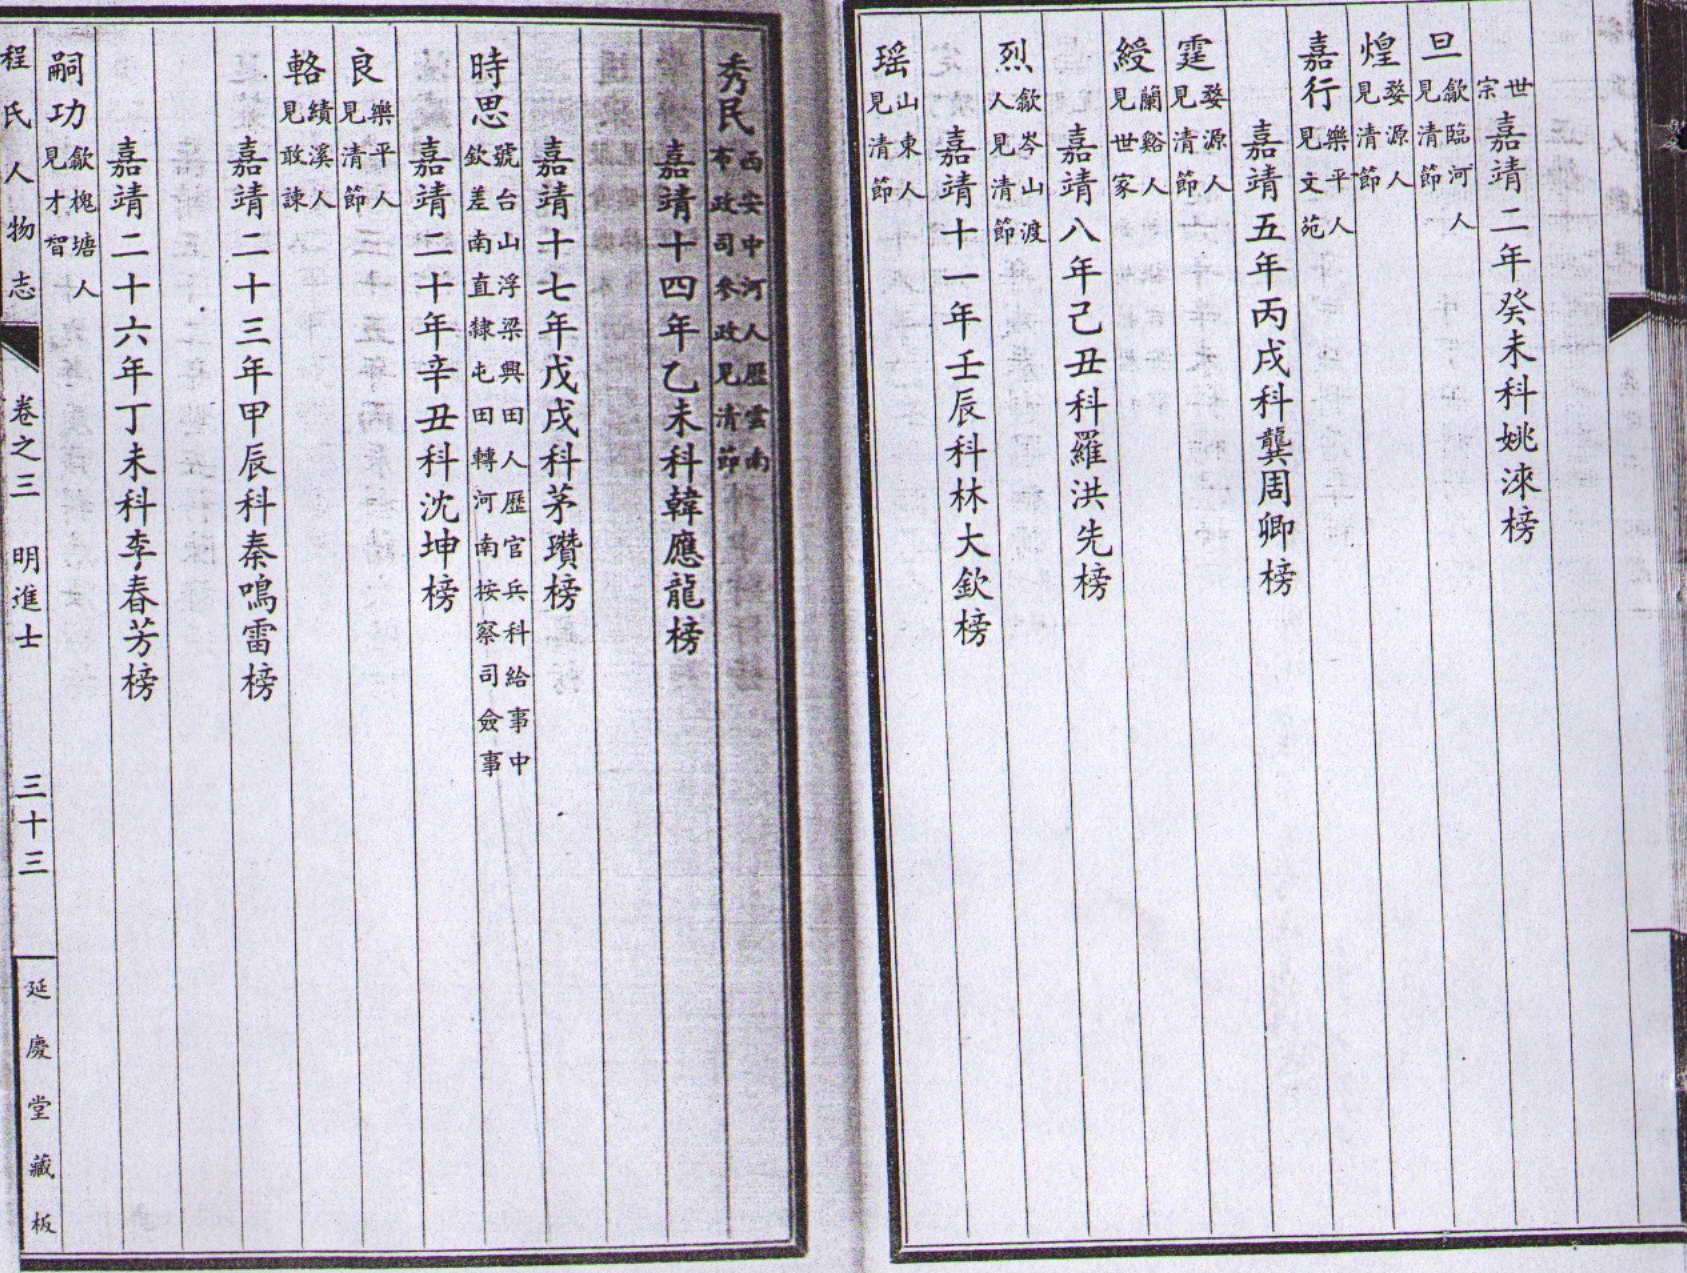 世宗
嘉靖二年癸未科姚淶榜
旦 歙臨河人見清節
煌 婺源人見清節
嘉行 樂平人見文苑
嘉靖五年丙戌科龔周卿榜
霆 婺源人見清節
綬 蘭谿人見世家
嘉靖八年己丑科羅洪先榜
烈 歙岑山渡人見清節
嘉靖十一年壬辰科林大欽榜
瑶 山東人見清節
秀民 西安中河人歷雲南布政司參政見清節
嘉靖十四年乙未科韓應龍榜
嘉靖十七年戊戌科茅瓚榜
時思 號台山浮梁興田人歷官兵科給事中欽差南直隸屯田轉河南按察司僉事
嘉靖二十年辛丑科沈坤榜
良 樂平人見清節
輅 績溪人見敢諫
嘉靖二十三年甲辰科秦鳴雷榜
嘉靖二十六年丁未科李春芳榜
嗣功 歙槐塘人見才智
程氏人物志 卷之三 明進士 三十三 延慶堂藏板